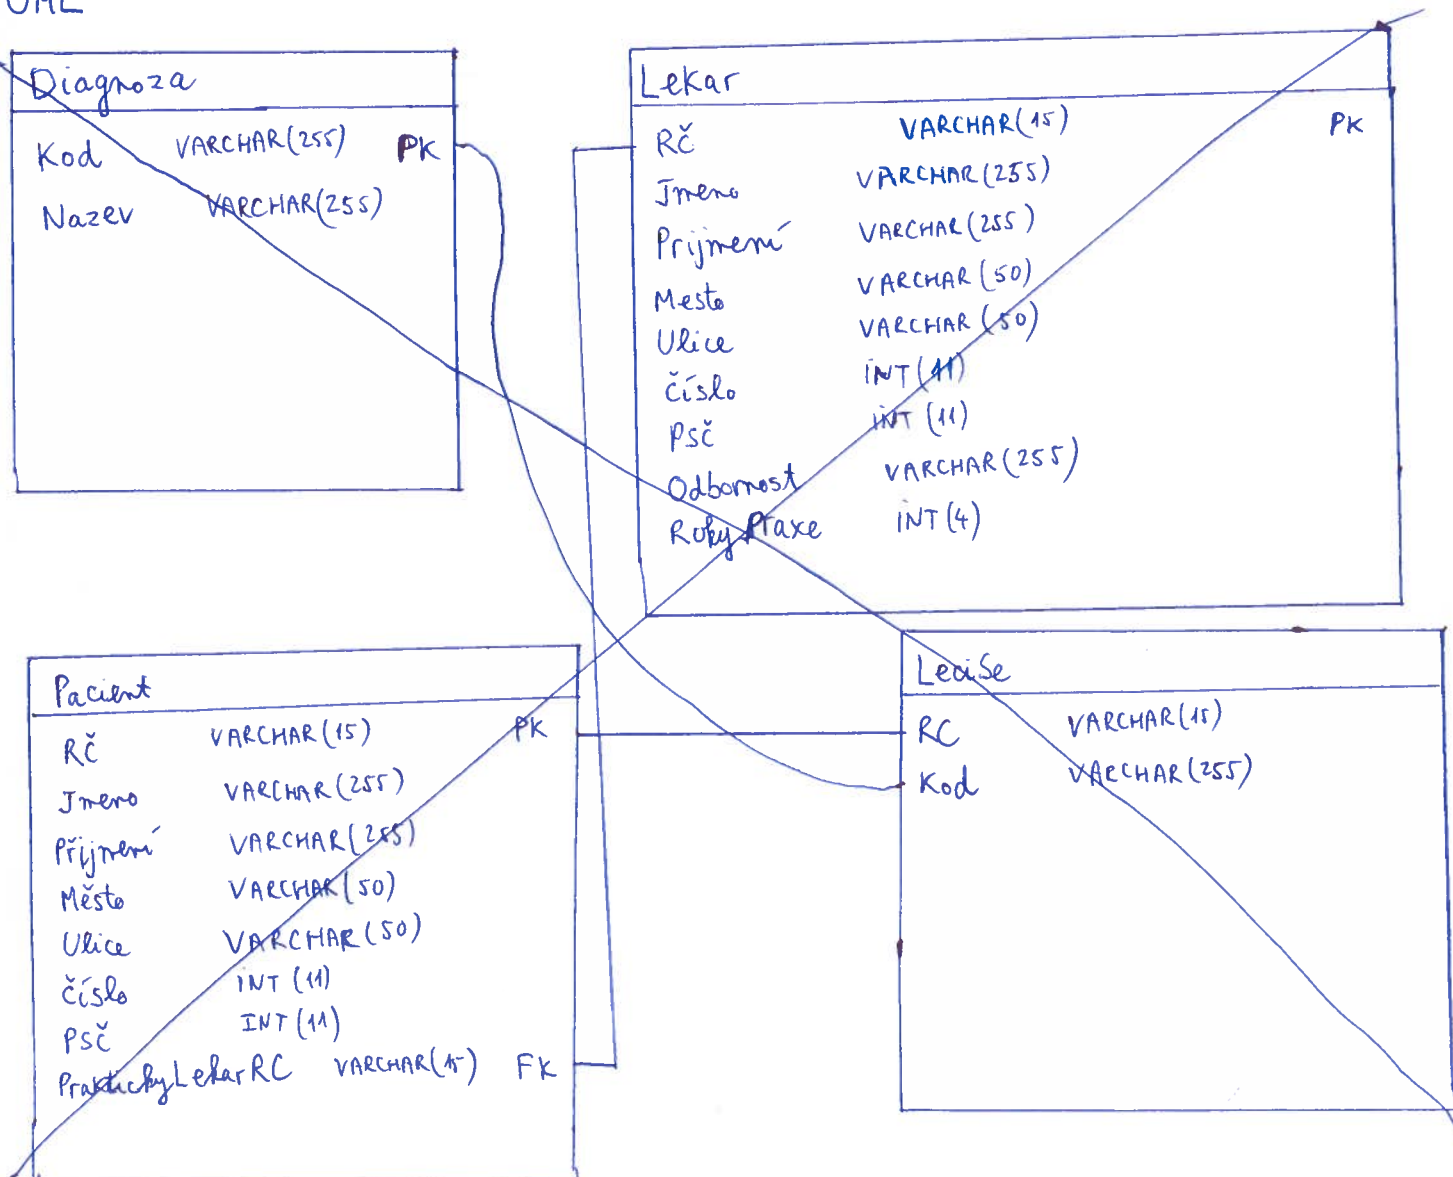 UML
Diagnoza
Kod VARCHAR(255) PK
Nazev VARCHAR(255)
Lekar
RČ VARCHAR(15) PK
Jmeno VARCHAR(255)
Prijmení VARCHAR(255)
Mesto VARCHAR(50)
Ulice VARCHAR(50)
Číslo INT(11)
PSČ INT(11)
Odbornost VARCHAR(255)
Roky Praxe INT(4)
Pacient
RČ VARCHAR(15) PK
Jmeno VARCHAR(255)
Přijmení VARCHAR(255)
Město VARCHAR(50)
Ulice VARCHAR(50)
Číslo INT(11)
PSČ INT(11)
PraktickyLekarRC VARCHAR(15) FK
LeciSe
RC VARCHAR(15)
Kod VARCHAR(255)